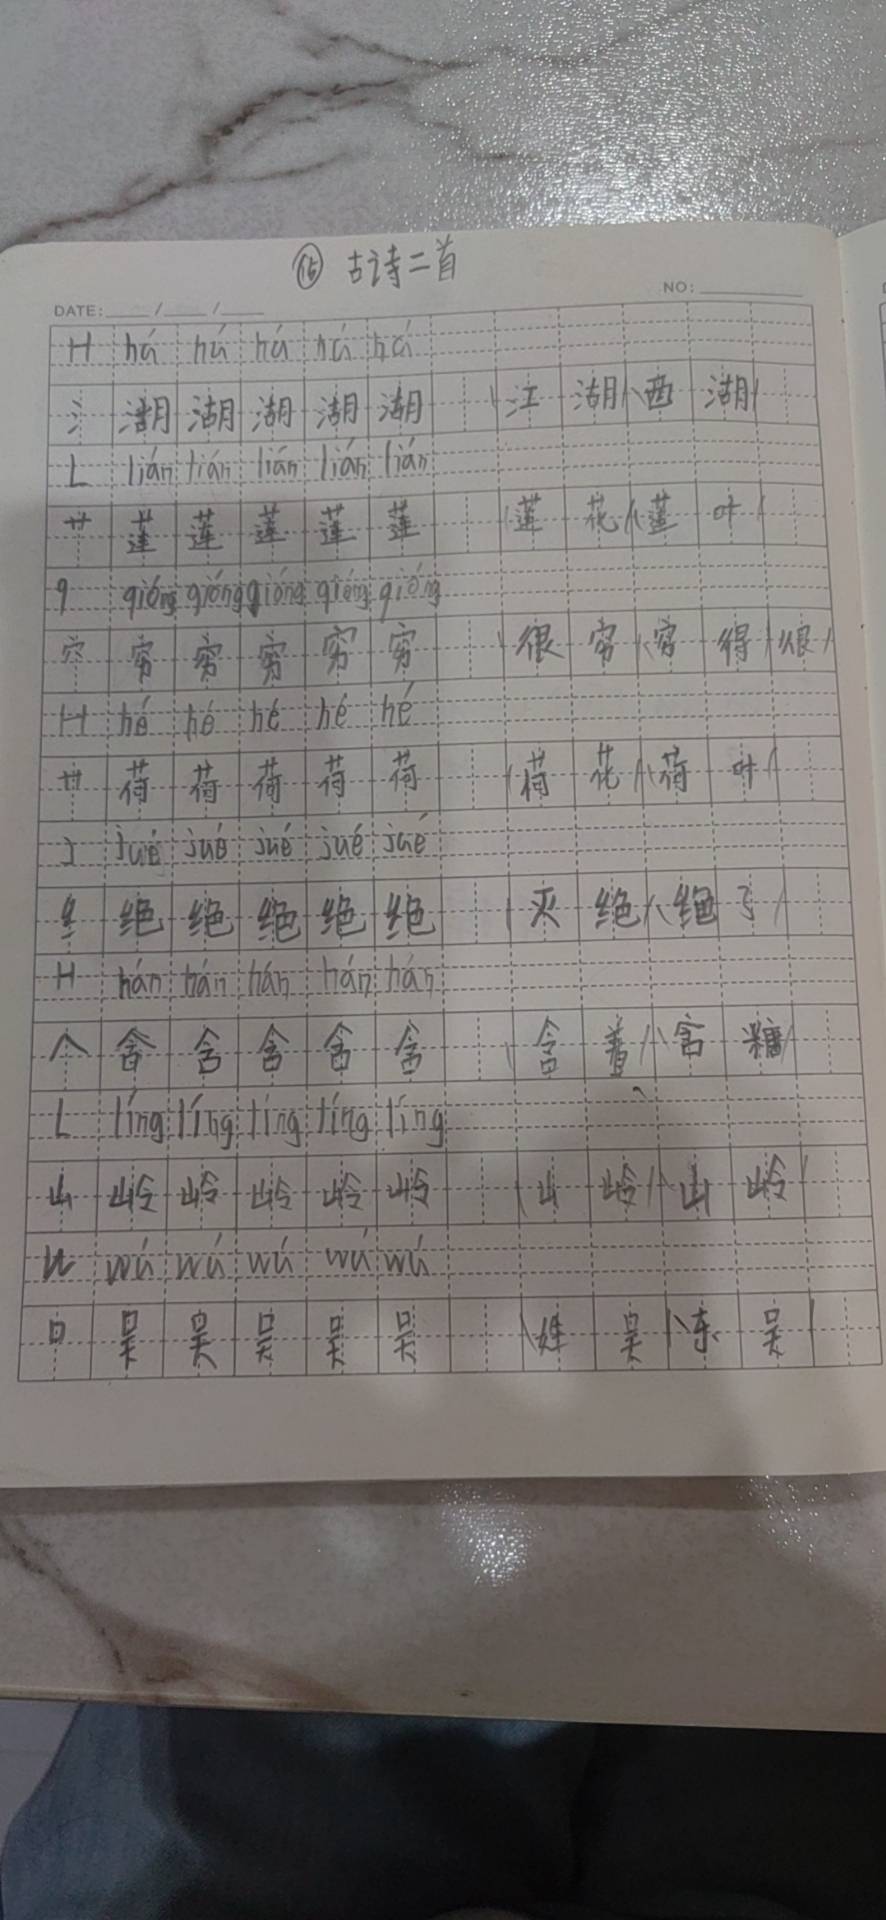 ⑮ 古诗二首
DATE: / / NO:
H hú hú hú hú hú
氵 湖 湖 湖 湖 湖 (江湖)(西湖)
L lián lián lián lián lián
艹 莲 莲 莲 莲 莲 (莲花)(莲叶)
q qióng qióng qióng qióng qióng
穴 穷 穷 穷 穷 穷 (很穷)(穷得很)
H hé hé hé hé hé
艹 荷 荷 荷 荷 荷 (荷花)(荷叶)
J jué jué jué jué jué
纟 绝 绝 绝 绝 绝 (灭绝)(绝了)
H hán hán hán hán hán
人 含 含 含 含 含 (含着)(含糖)
L líng líng líng líng líng
山 岭 岭 岭 岭 岭 (山岭)(山岭)
W wú wú wú wú wú
口 吴 吴 吴 吴 吴 (姓吴)(东吴)